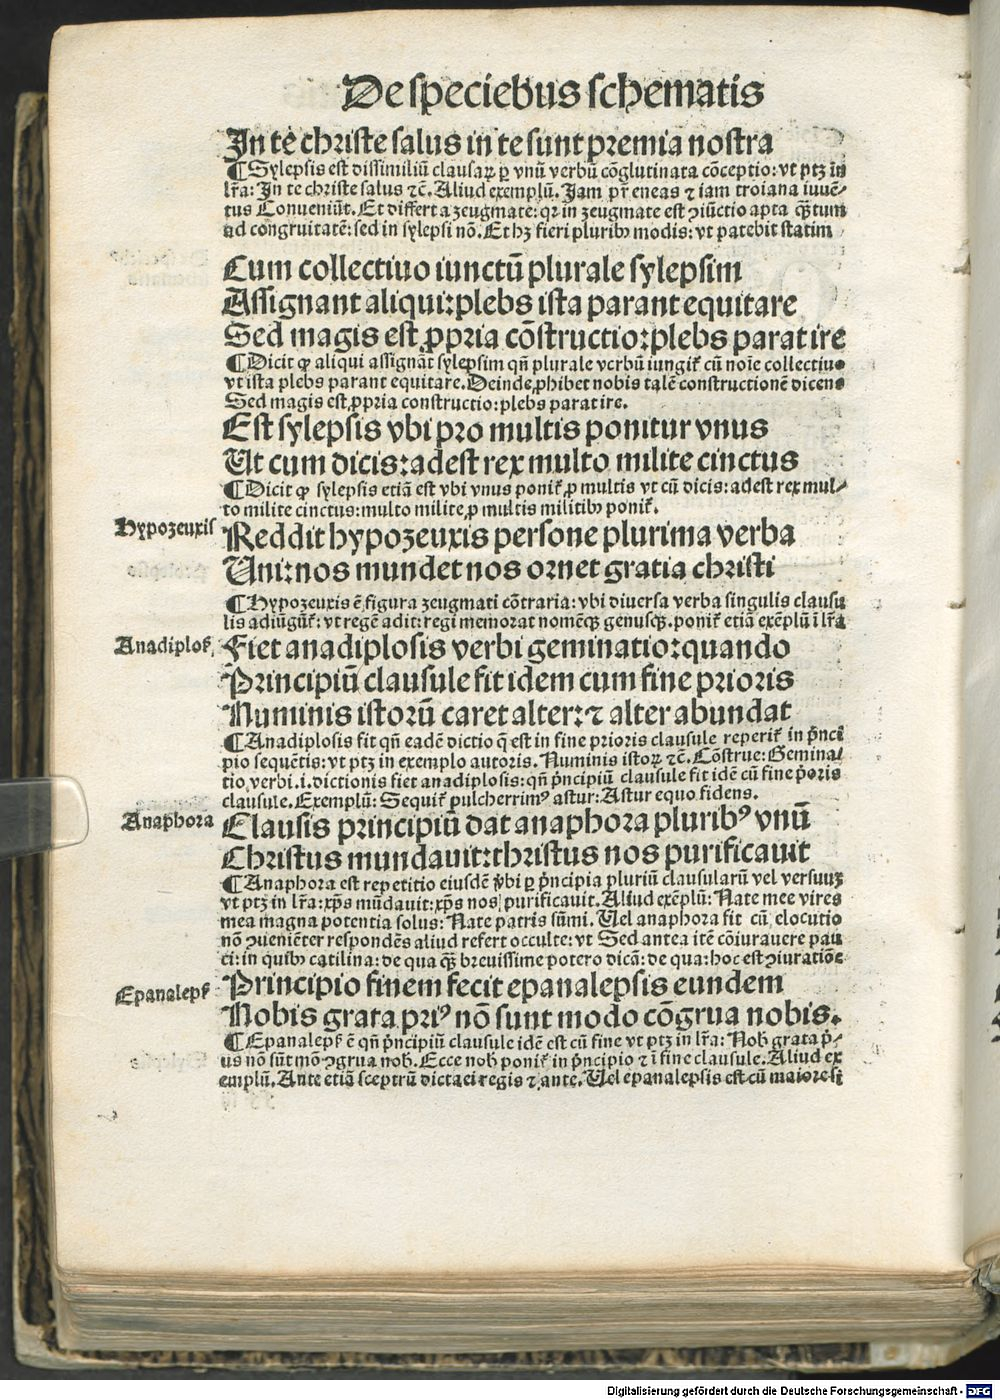 De speciebus schematis
In te christe salus in te sunt premia nostra
¶Sylepsis est dissimiliū clausaꝝ ꝑ vnū verbū cōglutinata cōceptio: vt ptꝫ in
lr̄a: In te christe salus ⁊c̄. Aliud exemplū. Jam pr̄ eneas ⁊ iam troiana iuuē-
tus Conueniūt. Et differt a zeugmate: qꝛ in zeugmate est ꝯiūctio apta qꝫtum
ad congruitatē: sed in sylepsi nō. Et hꝫ fieri pluribꝰ modis: vt patebit statim
Cum collectiuo iunctū plurale sylepsim
Assignant aliqui: plebs ista parant equitare
Sed magis est ꝓpria cōstructio: plebs parat ire
¶Dicit ꝙ aliqui assignāt sylepsim qn̄ plurale verbū iungit̄ cū noīe collectiuo
vt ista plebs parant equitare. Deinde ꝓhibet nobis talē constructionē dicens
Sed magis est ꝓpria constructio: plebs parat ire.
Est sylepsis vbi pro multis ponitur vnus
Ut cum dicis: adest rex multo milite cinctus
¶Dicit ꝙ sylepsis etiā est vbi vnus ponit̄ ꝓ multis vt cū dicis: adest rex mul-
to milite cinctus: multo milite ꝓ multis militibꝰ ponit̄.
Hypozeuxis
Reddit hypozeuxis persone plurima verba
Uni: nos mundet nos ornet gratia christi
¶Hypozeuxis ē figura zeugmati cōtraria: vbi diuersa verba singulis clausu
lis adiūgūt̄: vt regē adit: regi memorat nomēqꝫ genusqꝫ. ponit̄ etiā exēplū ī lr̄a
Anadiplos̄.
Fiet anadiplosis verbi geminatio: quando
Principiū clausule fit idem cum fine prioris
Numinis istorū caret alter: ⁊ alter abundat
¶Anadiplosis fit qn̄ eadē dictio q̄ est in fine prioris clausule reperit̄ in pͥnci
pio sequētis: vt ptꝫ in exemplo autoris. Numinis istoꝝ ⁊c̄. Cōstrue: Gemina-
tio verbi .i. dictionis fiet anadiplosis: qn̄ pͥncipiū clausule fit idē cū fine pͥoris
clausule. Exemplū: Sequit̄ pulcherrimꝰ astur: Astur equo fidens.
Anaphora
Clausis principiū dat anaphora pluribꝰ vnū
Christus mundauit: christus nos purificauit
¶Anaphora est repetitio eiusdē v̓bi ꝑ pͥncipia pluriū clausularū vel versuuꝫ
vt ptꝫ in lr̄a: xp̄s mūdauit: xp̄s nos purificauit. Aliud exēplū: Nate mee vires
mea magna potentia solus: Nate patris sūmi. Uel anaphora fit cū elocutio
nō ꝯueniēter respondēs aliud refert occulte: vt Sed antea itē cōiurauere pau
ci: in quibꝰ catilina: de qua qꝫ breuissime potero dicā: de qua: hoc est ꝯiuratiōe
Epanaleps̄
Principio finem fecit epanalepsis eundem
Nobis grata priꝰ nō sunt modo cōgrua nobis.
¶Epanaleps̄ ē qn̄ pͥncipiū clausule idē est cū fine vt ptꝫ in lr̄a: Nob̄ grata pͥ-
us nō sūt mō ꝯgrua nob̄. Ecce nob̄ ponit̄ in pͥncipio ⁊ ī fine clausule. Aliud ex
emplū. Ante etiā sceptrū dictaei regis ⁊ ante. Uel epanalepsis est cū maiore si
Digitalisierung gefördert durch die Deutsche Forschungsgemeinschaft - DFG